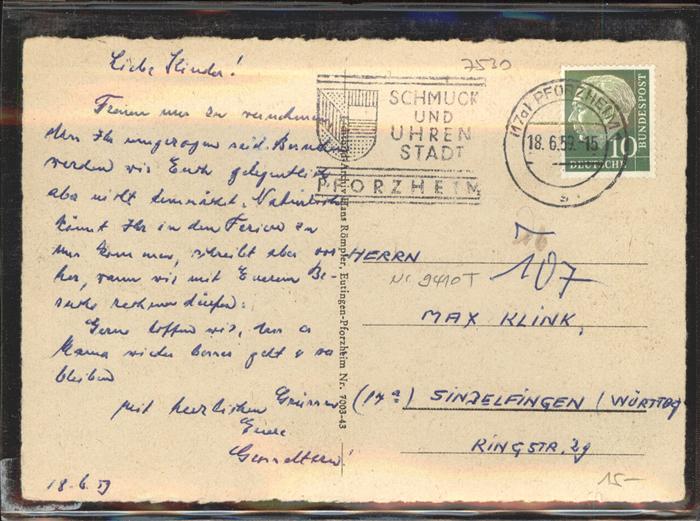 Liebe Kinder!
7530
Freuen uns zu vernehmen
dass Ihr umgezogen seid.
werden wir Euch gelegentlich
aber nicht demnächst. Natürlich
könnt Ihr in den Ferien zu
uns kommen, schreibt aber vor-
her, wann wir mit Eurem Be-
suche rechnen dürfen.
Gerne hoffen wir, dass es
Mama wieder besser geht &
bleiben
mit herzlichen Grüssen
Eure
18.6.59
SCHMUCK
UND
UHREN
STADT
PFORZHEIM
(17a) PFORZHEIM
18.6.59.-15
10
DEUTSCHE
BUNDESPOST
Hans Römpler, Eutingen-Pforzheim Nr. 7003-43
HERRN
107
Nr. 9410T
MAX KLINK,
(14a) SINDELFINGEN (WÜRTTBG
RINGSTR. 29
15-